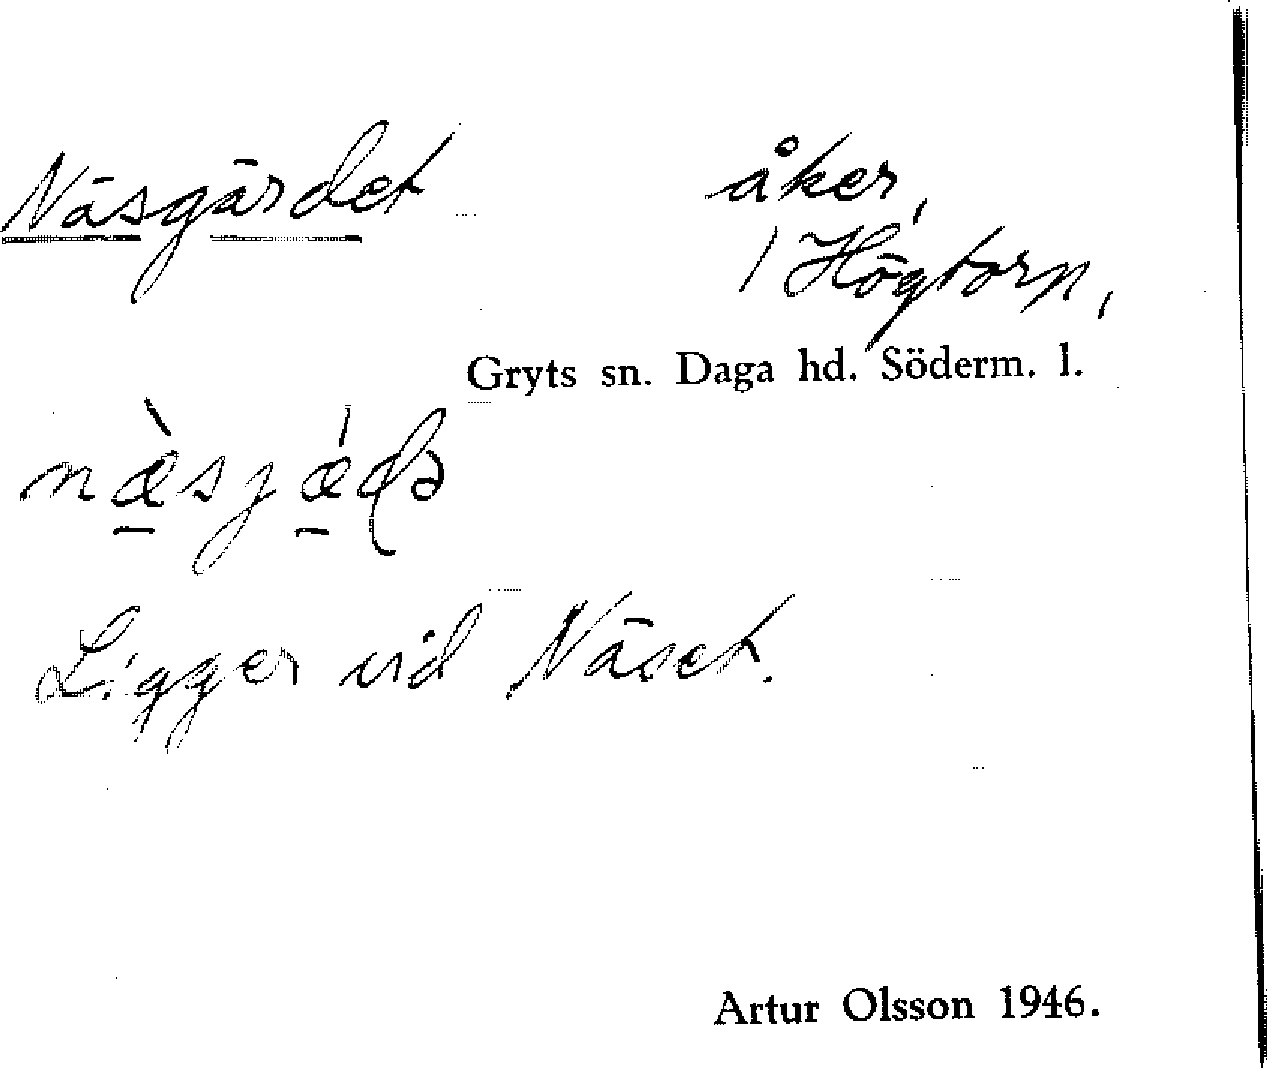 Näsgärdet åker,
/ Högtorp,
Gryts sn. Daga hd. Söderm. l.
næ̀sjǽḍə
Ligger vid Näset.
Artur Olsson 1946.